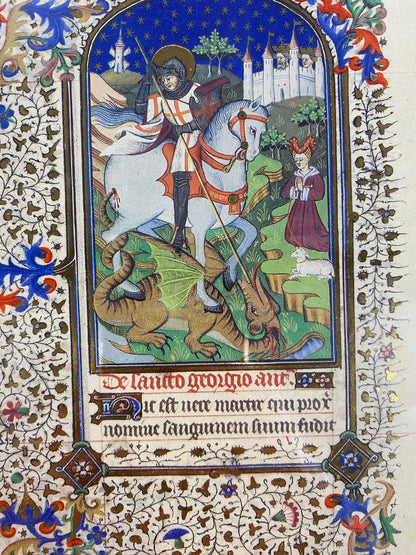 De sancto georgio ant̃.
Hic est vere martir qui pro xp̃i
nomine sanguinem suum fudit